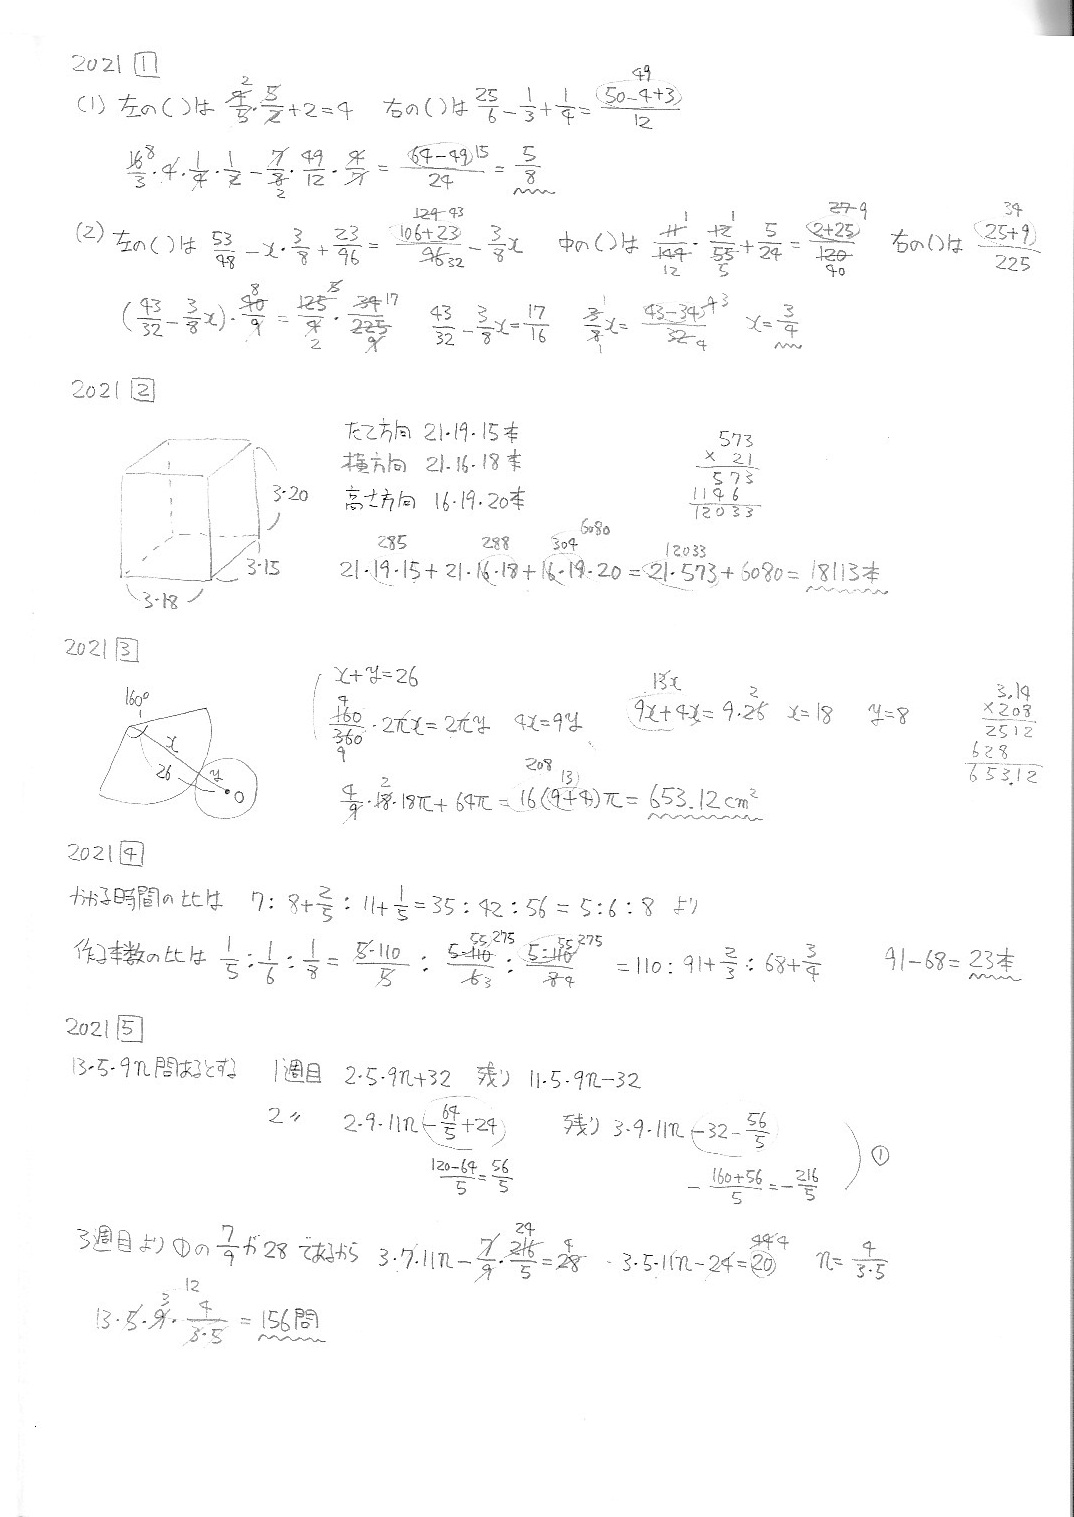 2021 1
(1) 左の( )は 4/5・5/2+2=4 右の( )は 25/6 − 1/3 + 1/4 = (50−4+3)/12 49
16/3・4・1/4・1/2 − 7/8・49/12・4/7 = (64−49)/24 15 = 5/8
(2) 左の( )は 53/48 − x・3/8 + 23/96 = (106+23)/96 − 3/8x 中の( )は 11/144・12/55 + 5/24 = (2+25)/120 右の( )は (25+9)/225 34
(43/32 − 3/8x)・40/9 = 125/4・34/225 43/32 − 3/8x = 17/16 3/8x = (43−34)/32 x = 3/4
2021 2
たて方向 21・19・15本
横方向 21・16・18本
高さ方向 16・19・20本
3・20
3・15
3・18
573
× 21
573
1146
12033
285 288 304 6080 12033
21・19・15+21・16・18+16・19・20=21・573+6080=18113本
2021 3
160°
x
26
y
O
x+y=26
160/360・2πx=2πy 4x=9y
13x
9x+4x=9・26 x=18 y=8
4/9・18・18π+64π=16(9+4)π=653.12cm²
208 13
3.14
×208
2512
628
653.12
2021 4
かかる時間の比は 7:8+2/5:11+1/5=35:42:56=5:6:8 より
作る本数の比は 1/5:1/6:1/8 = 5・110/5 : 5・110/6 : 5・110/8 = 110:91+2/3:68+3/4 91−68=23本
2021 5
13・5・9n問あるとする 1週目 2・5・9n+32 残り 11・5・9n−32
2〃 2・9・11n−64/5+24 残り 3・9・11n−32−56/5
(120−64)/5=56/5 −(160+56)/5=−216/5 ①
3週目より①の7/9が28であるから 3・7・11n−7/9・216/5=28 3・5・11n−24=20 n=4/(3・5)
13・5・9・4/(3・5)=156問